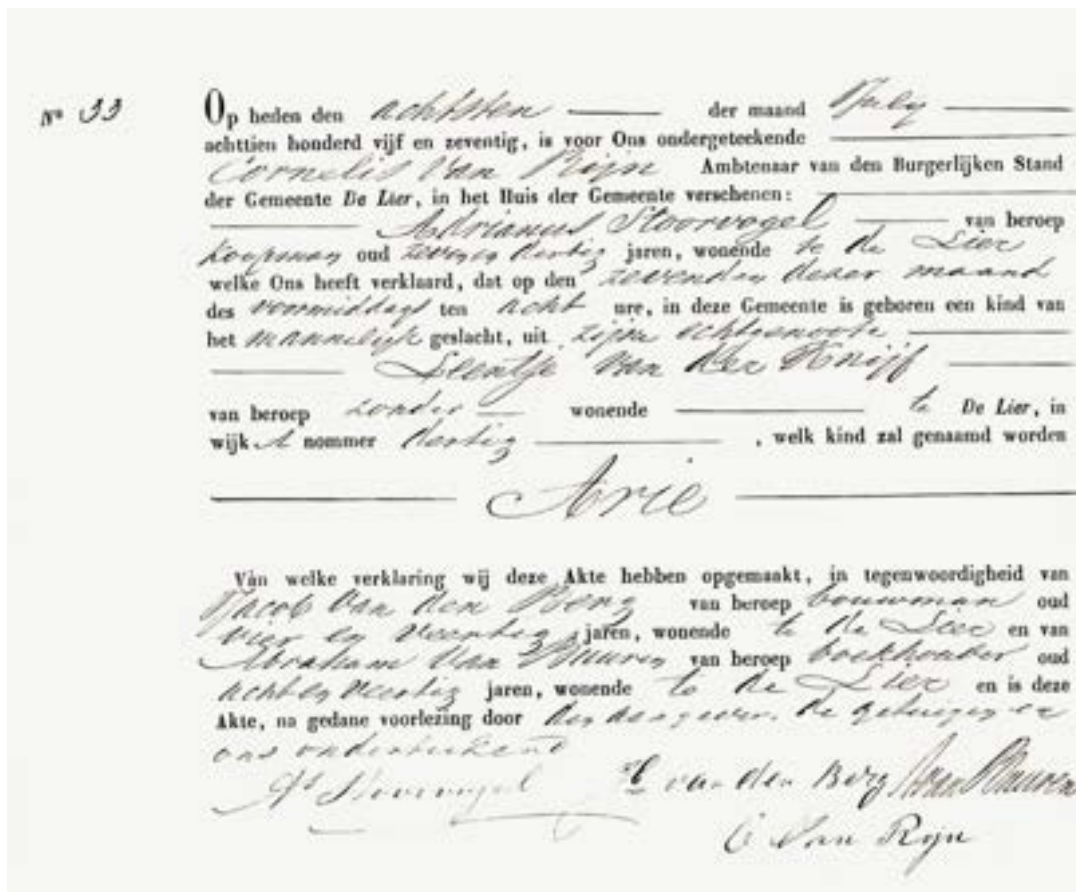 Nº 33
Op heden den achtsten der maand July
achttien honderd vijf en zeventig, is voor Ons ondergeteekende
Cornelis van Rijn Ambtenaar van den Burgerlijken Stand
der Gemeente De Lier, in het Huis der Gemeente verschenen:
Adrianus Stoorvogel van beroep
koopman oud zeven en dertig jaren, wonende te de Lier
welke Ons heeft verklaard, dat op den zevenden dezer maand
des voormiddags ten acht ure, in deze Gemeente is geboren een kind van
het mannelijk geslacht, uit zijne echtgenoote
Leentje van der Knijf
van beroep zonder wonende te De Lier, in
wijk A nommer dertig, welk kind zal genaamd worden
Arie
Van welke verklaring wij deze Akte hebben opgemaakt, in tegenwoordigheid van
Jacob van den Berg van beroep bouwman oud
vier en veertig jaren, wonende te de Lier en van
Abraham van Buuren van beroep boekhouder oud
acht en veertig jaren, wonende te de Lier en is deze
Akte, na gedane voorlezing door den aangever, de getuigen en
ons onderteekend
As Stoorvogel
J van den Berg A van Buuren
C van Rijn